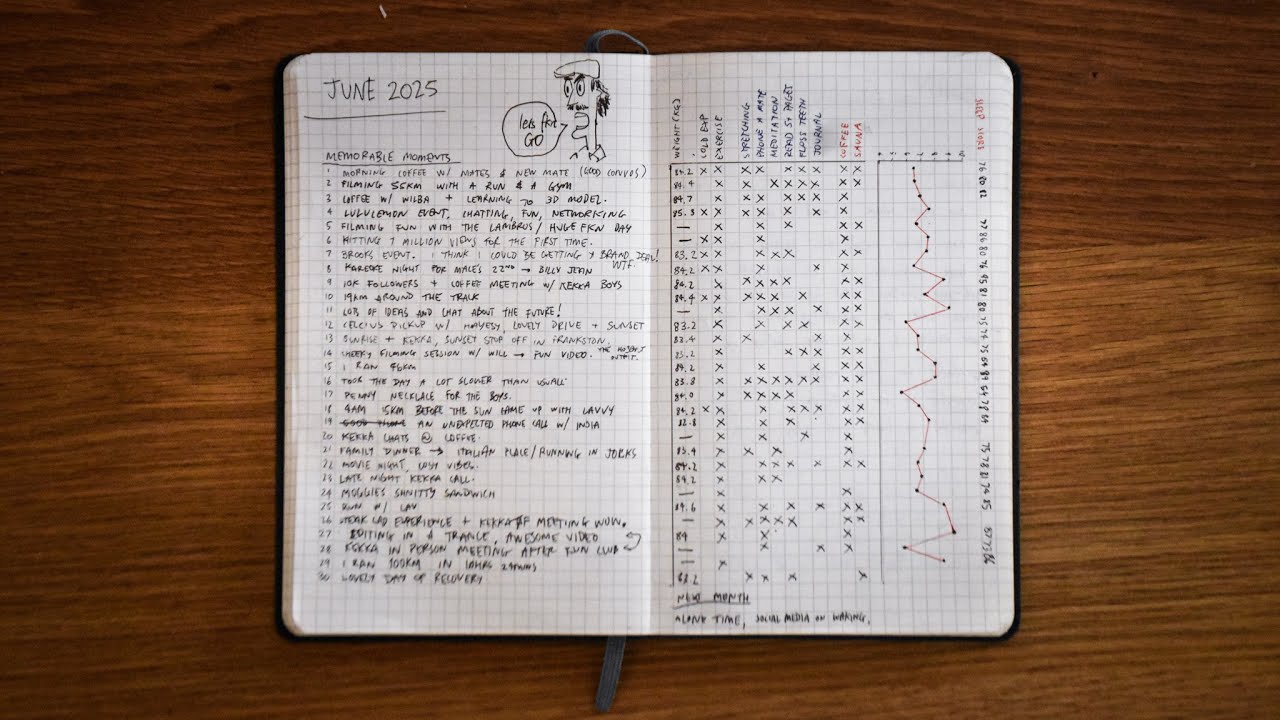 JUNE 2025
lets
GO
MEMORABLE MOMENTS
1 MORNING COFFEE W/ MATES & NEW MATE (GOOD CONVOS)
2 FILMING 55KM WITH A RUN & A GYM
3 COFFEE W/ WILBA + LEARNING TO 3D MODEL.
4 LULULEMON EVENT, CHATTING, FUN, NETWORKING
5 FILMING FUN WITH THE LAMBROS / HUGE FKN DAY
6 HITTING 7 MILLION VIEWS FOR THE FIRST TIME.
7 BROOKS EVENT. I THINK I COULD BE GETTING A BRAND DEAL! WTF.
8 KAREOKE NIGHT FOR MALE'S 22ND → BILLY JEAN
9 10K FOLLOWERS + COFFEE MEETING W/ KEKKA BOYS
10 19KM AROUND THE TRACK
11 LOTS OF IDEAS AND CHAT ABOUT THE FUTURE!
12 CELCIUS PICKUP W/ LOVELY DRIVE + SUNSET
13 SUNRISE + KEKKA, SUNSET STOP OFF IN FRANKSTON.
14 CHEEKY FILMING SESSION W/ WILL → FUN VIDEO. THE OUTFIT.
15 I RAN 46KM
16 TOOK THE DAY A LOT SLOWER THAN USUAL
17 PENNY NECKLACE FOR THE BOYS.
18 4AM 15KM BEFORE THE SUN CAME UP WITH LAVVY
19 AN UNEXPECTED PHONE CALL W/ INDIA
20 KEKKA CHATS @ COFFEE.
21 FAMILY DINNER → ITALIAN PLACE / RUNNING IN JORTS
22 MOVIE NIGHT, COSY VIBES.
23 LATE NIGHT KEKKA CALL.
24 MOGGIES SHNITTY SANDWICH
25 RUN W/ LAV
26 STEAK EXPERIENCE + KEKKA MEETING WOW.
27 EDITING IN A TRANCE, AWESOME VIDEO
28 KEKKA IN PERSON MEETING AFTER RUN CLUB
29 I RAN 100KM IN 10HRS
30 LOVELY DAY OF RECOVERY
WEIGHT (KG)
COLD EXP
EXERCISE
STRETCHING
PHONE A MATE
MEDITATION
READ 5+ PAGES
FLOSS TEETH
JOURNAL
COFFEE
SAUNA
SLEEP SCORE
84.2 X X X X X X X X X
84.4 X X X X X X X X
84.7 X X X X X X
85.3 X X X X X X X
— X X X X
— X X X X
83.2 X X X X X X X
84.2 X X X X X
84.2 X X X X X X
84.4 X X X X X X X
— X X X X X X
83.2 X X X X X X
83.4 X X X
83.2 X X X X X X
84.2 X X X X
83.8 X X X X X X X X X
84.0 X X X X X X X
84.2 X X X X X X X X
82.8 X X X X X
— X X X X
83.4 X X X X
84.2 X X X X X X X
84.2 X X X
— X X
84.6 X X X X X X
— X X X X X X X
84 X X X
— X X X
— X
83.2 X X X X
NEW MONTH
ALONE TIME, SOCIAL MEDIA ON WAKING.